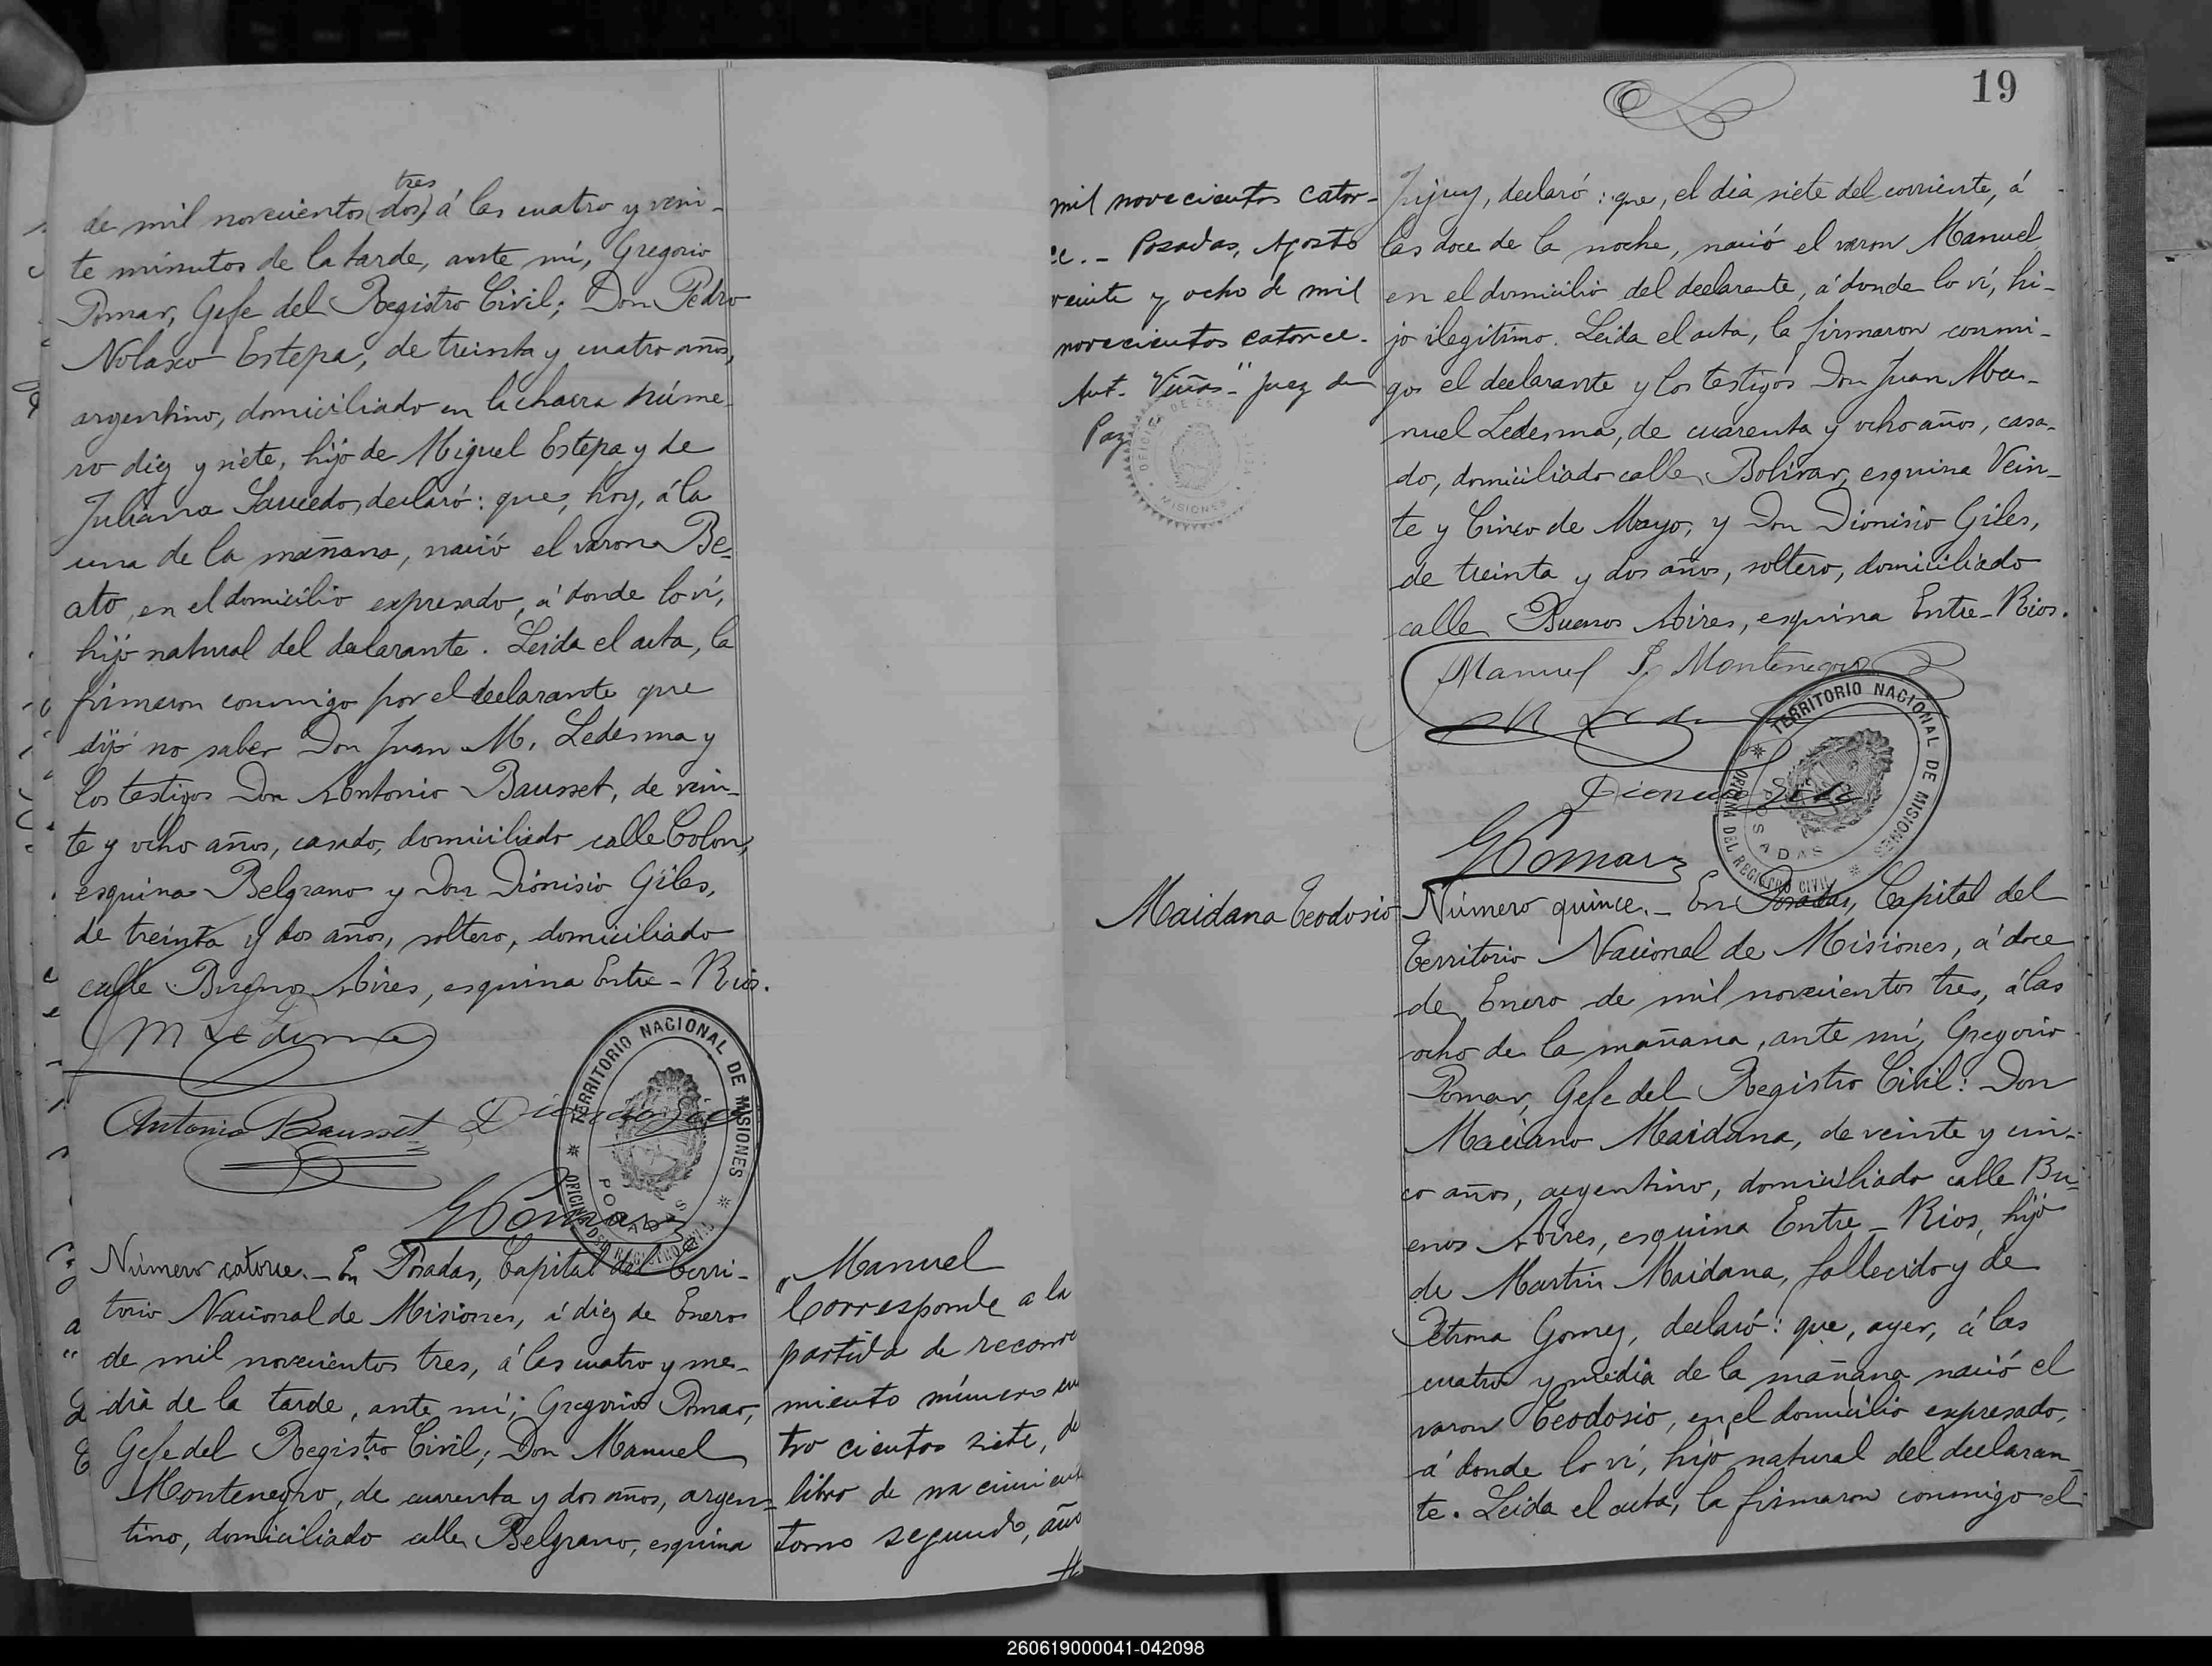 tres
de mil novecientos (dos) á las cuatro y vein-
te minutos de la tarde, ante mí, Gregorio
Pomar, Gefe del Registro Civil; Don Pedro
Nolasco Estepa, de treinta y cuatro años,
argentino, domiciliado en la chacra núme-
ro diez y siete, hijo de Miguel Estepa y de
Juliana Saucedo, declaró: que, hoy, á la
una de la mañana, nació el varon Be-
ato, en el domicilio expresado, á donde lo ví,
hijo natural del declarante. Leida el acta, la
firmaron conmigo por el declarante que
dijo no saber Don Juan M. Ledesma y
los testigos Don Antonio Bausset, de vein-
te y ocho años, casado, domiciliado calle Colon,
esquina Belgrano y Don Dionisio Giles,
de treinta y dos años, soltero, domiciliado
calle Buenos Aires, esquina Entre-Rios.
M Ledesma
Antonio Bausset Dionisio Giles
GPomar
TERRITORIO NACIONAL DE MISIONES
OFICINA DEL REGISTRO CIVIL
POSADAS
Número catorce. - En Posadas, Capital del Terri-
torio Nacional de Misiones, á diez de Enero
de mil novecientos tres, á las cuatro y me-
dia de la tarde, ante mí; Gregorio Pomar,
Gefe del Registro Civil; Don Manuel
Montenegro, de cuarenta y dos años, argen-
tino, domiciliado calle Belgrano, esquina
Manuel
"Corresponde a la
partida de recono
miento número cua
tro cientos siete, de
libro de nacimient
tomo segundo, año
19
mil novecientos cator-
ce. - Posadas, Agosto
veinte y ocho de mil
novecientos catorce.
Ant. Viñas" Juez de
Paz
MISIONES
Jujuy, declaró: que, el dia siete del corriente, á
las doce de la noche, nació el varon Manuel
en el domicilio del declarante, á donde lo ví, hi-
jo ilegítimo. Leida el acta, la firmaron conmi-
go el declarante y los testigos Don Juan Ma-
nuel Ledesma, de cuarenta y ocho años, casa-
do, domiciliado calle Bolivar, esquina Vein-
te y Cinco de Mayo, y Don Dionisio Giles,
de treinta y dos años, soltero, domiciliado
calle Buenos Aires, esquina Entre-Rios.
Manuel J. Montenegro
M Ledesma
Dionisio Giles
GPomar
TERRITORIO NACIONAL DE MISIONES
OFICINA DEL REGISTRO CIVIL
POSADAS
Maidana Teodosio
Número quince. - En Posadas, Capital del
Territorio Nacional de Misiones, á doce
de Enero de mil novecientos tres, á las
ocho de la mañana, ante mí, Gregorio
Pomar, Gefe del Registro Civil: Don
Maciano Maidana, de veinte y cin-
co años, argentino, domiciliado calle Bu-
enos Aires, esquina Entre-Rios, hijo
de Martin Maidana, fallecido y de
Petrona Gomez, declaró: que, ayer, á las
cuatro y media de la mañana nació el
varon Teodosio, en el domicilio expresado,
á donde lo ví, hijo natural del declaran-
te. Leida el acta, la firmaron conmigo el
260619000041-042098